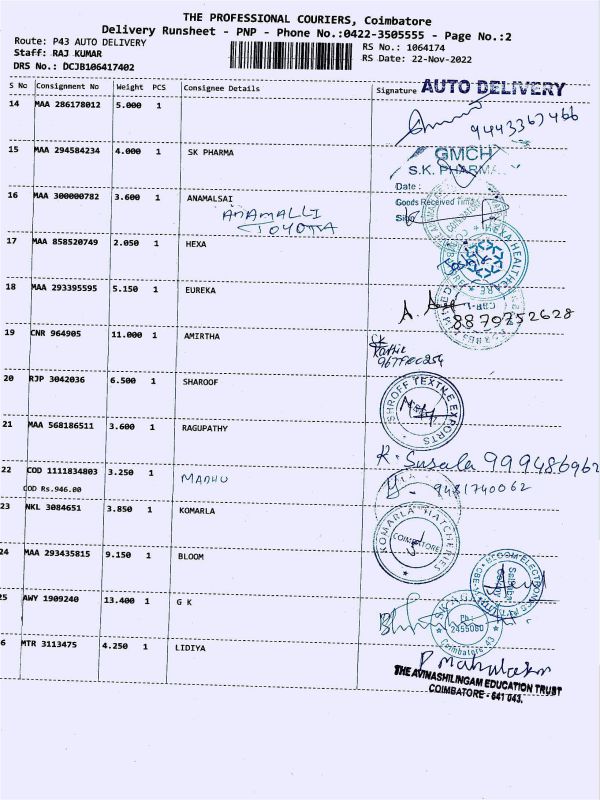 THE PROFESSIONAL COURIERS, Coimbatore
Delivery Runsheet - PNP - Phone No.:0422-3505555 - Page No.:2
Route: P43 AUTO DELIVERY
Staff: RAJ KUMAR
DRS No.: DCJB106417402
RS No.: 1064174
RS Date: 22-Nov-2022
S No Consignment No Weight PCS Consignee Details Signature AUTO DELIVERY
14 MAA 286178012 5.000 1 9443367466
15 MAA 294584234 4.000 1 SK PHARMA
GMCH
S.K. PHARMA
Date :
Goods Received Time
Sign
16 MAA 300000782 3.600 1 ANAMALSAI
ANAMALLI
TOYOTA
17 MAA 858520749 2.050 1 HEXA
HEXA HEALTHCARE
18 MAA 293395595 5.150 1 EUREKA
8870752628
19 CNR 964905 11.000 1 AMIRTHA
20 RJP 3042036 6.500 1 SHAROOF
SHROFF TEXTILE EXPORTS
21 MAA 568186511 3.600 1 RAGUPATHY
R. Susala 999486962
22 COD 1111834803 3.250 1 MADHU
9481740062
COD Rs.946.00
23 NKL 3084651 3.850 1 KOMARLA
KOMARLA HATCHERIES
COIMBATORE
24 MAA 293435815 9.150 1 BLOOM
BLOOM ELECTRONIC
25 AWY 1909240 13.400 1 G K
Ph :
2455080
Coimbatore-43
6 MTR 3113475 4.250 1 LIDIYA
THE AVINASHILINGAM EDUCATION TRUST
COIMBATORE - 641 043.